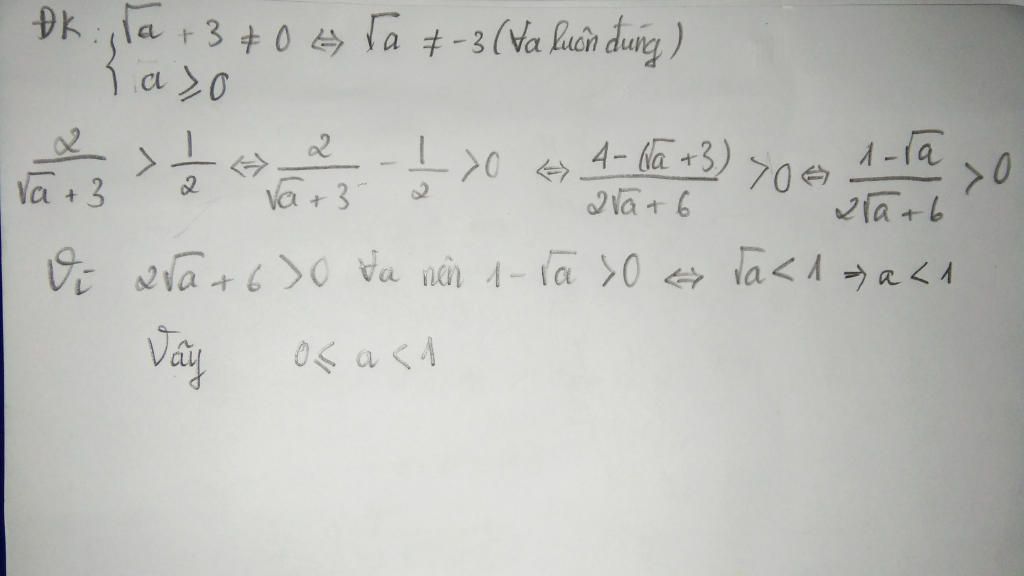 ĐK: { √a + 3 ≠ 0 ⇔ √a ≠ -3 (∀a luôn đúng)
a ⩾ 0
2/(√a + 3) > 1/2 ⇔ 2/(√a + 3) - 1/2 > 0 ⇔ (4-(√a+3))/(2√a+6) > 0 ⇔ (1-√a)/(2√a+6) > 0
Vì 2√a + 6 > 0 ∀a nên 1-√a > 0 ⇔ √a < 1 ⇒ a < 1
Vãy 0 ⩽ a < 1